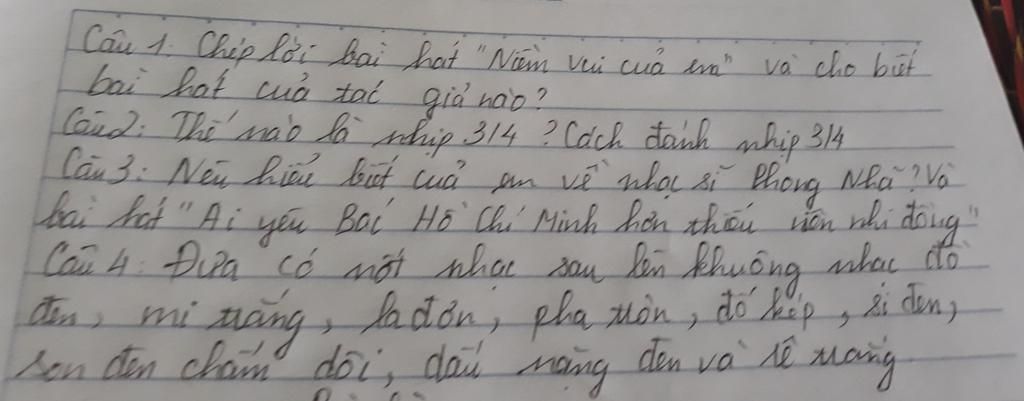 Câu 1: Chép lời bài hát "Niềm vui của em" và cho biết
bài hát của tác giả nào?
Câu 2: Thế nào là nhịp 3/4? Cách đánh nhịp 3/4
Câu 3: Nêu hiểu biết của em về nhạc sĩ Phong Nhã? Và
bài hát "Ai yêu Bác Hồ Chí Minh hơn thiếu niên nhi đồng"
Câu 4: Đưa có nốt nhạc sau lên khuông nhạc đồ
đen, mi trắng, la đơn, pha tròn, đố kép, si đen,
son đen chấm dôi, dấu nặng đen và rê trắng